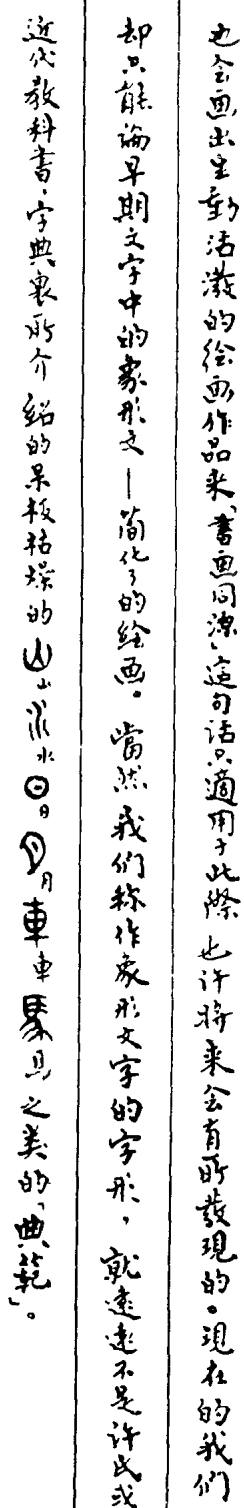 也会画出生動活潑的绘画作品来「書画同源」這句话只適用于此際也许將来会有所發現的。現在的我們
却只能論早期文字中的象形文—简化了的绘画。當然我們称作象形文字的字形，就遠遠不是许氏或
近代教科書，字典裏所介紹的呆板枯燥的山水日月車馬之类的「典範」。